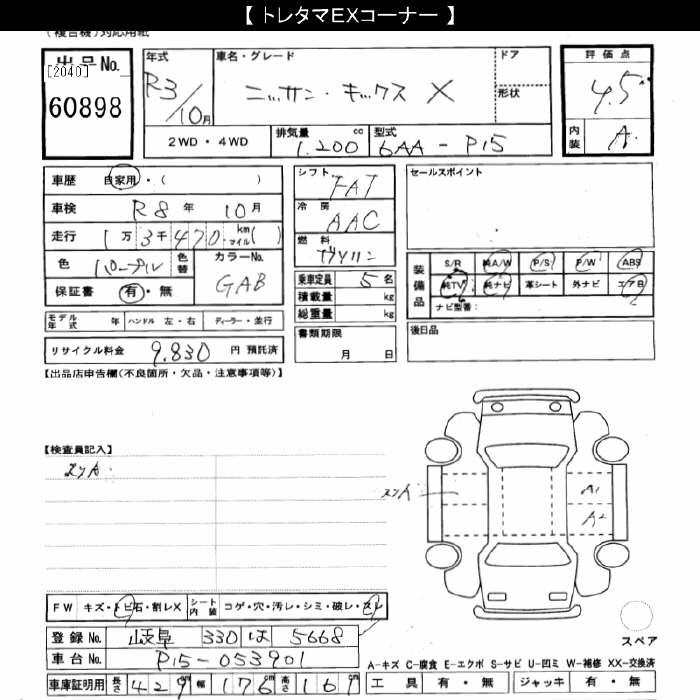 【 トレタマEXコーナー 】
(複合機)対応用紙
出品No.
[2040]
60898
年式
R3/10月
車名・グレード
ニッサン・キックス X
ドア
形状
評価点
4.5
内装
A
2WD・4WD
排気量 1.200 cc
型式 6AA - P15
車歴 自家用・( )
車検 R8年 10月
走行 1万3千470 km マイル( )
色 パープル
色替
カラーNo. GAB
保証書 有・無
モデル年式 年 ハンドル 左・右 ディーラー・並行
リサイクル料金 9.830 円 預託済
シフト FAT
冷房 AAC
燃料 ガソリン
乗車定員 5名
積載量 kg
総重量 kg
書類期限
月 日
セールスポイント
装備品
S/R 純A/W P/S P/W ABS
純TV 純ナビ 革シート 外ナビ エアB
ナビ型番:
後日品
【出品店申告欄(不良箇所・欠品・注意事項等)】
【検査員記入】
スリA
スリA
A1
A2
スペア
FW キズ・トビ石・割レX シート内装 コゲ・穴・汚レ・シミ・破レ・スレ
登録No. 岐阜 330 は 5668
車台No. P15-053901
車庫証明用 長さ 429 幅 176 高さ 161
A-キズ C-腐食 E-エクボ S-サビ U-凹ミ W-補修 XX-交換済
工具 有・無 ジャッキ 有・無